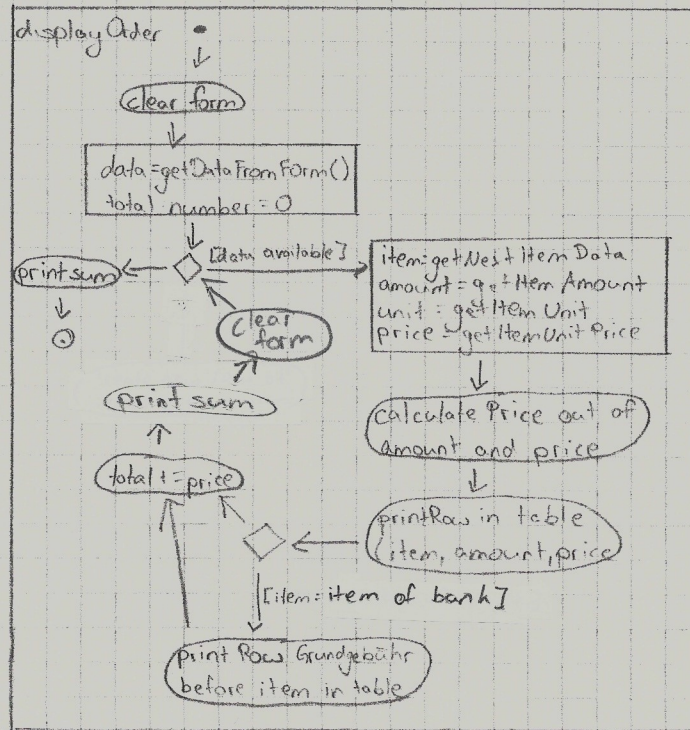 displayOrder
clear form
data=getDataFromForm()
total number = 0
[data available]
print sum
item=getNextItemData
amount = getItemAmount
unit = getItemUnit
price = getItemUnitPrice
clear
form
print sum
calculate Price out of
amount and price
total+=price
printRow in table
(item, amount, price
[item=item of bank]
print Row Grundgebühr
before item in table